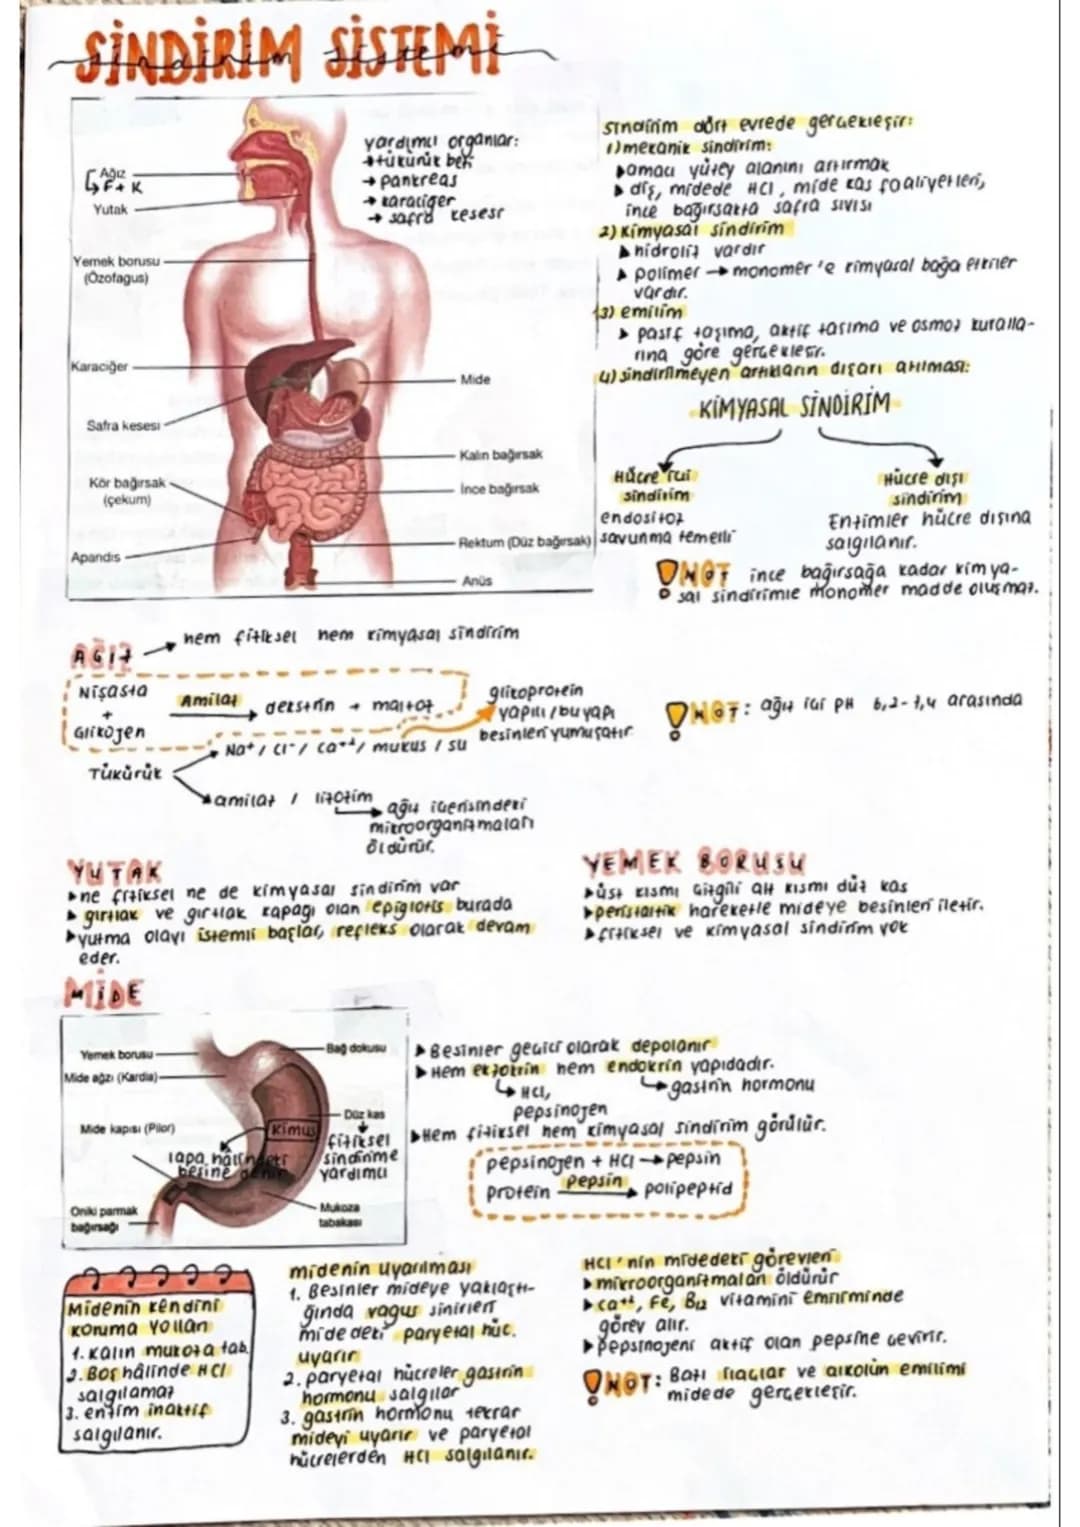 SİNDİRİM SİSTEMİ
sindirim sistemi
Ağız
F + K
Yutak
Yemek borusu
(Özofagus)
Karaciğer
Safra kesesi
Kör bağırsak
(çekum)
Apandis
yardımcı organlar:
→ tükürük bezi
→ pankreas
→ karaciğer
→ safra kesesi
Mide
Kalın bağırsak
İnce bağırsak
Rektum (Düz bağırsak)
Anüs
Sindirim dört evrede gerçekleşir:
1) mekanik sindirim:
▸ amacı yüzey alanını artırmak
▸ diş, midede HCl, mide kas faaliyetleri,
ince bağırsakta safra sıvısı
2) Kimyasal sindirim
▸ hidroliz vardır
▸ polimer → monomer 'e kimyasal bağa etkiler
vardır.
3) emilim
▸ pasif taşıma, aktif taşıma ve osmoz kuralla-
rına göre gerçekleşir.
4) sindirilmeyen artıkların dışarı atılması:
KİMYASAL SİNDİRİM
Hücre içi
sindirim
endositoz
savunma temelli
Hücre dışı
sindirim
Enzimler hücre dışına
salgılanır.
! NOT ince bağırsağa kadar kimya-
sal sindirimle monomer madde oluşmaz.
AĞIZ → hem fiziksel hem kimyasal sindirim
Nişasta
+
Glikojen
Amilaz → dekstrin + maltoz
glikoprotein
yapılı / bu yapı
besinleri yumuşatır
! NOT: ağız içi PH 6,2-7,4 arasında
Tükürük
Na⁺ / Cl⁻ / Ca⁺² / mukus / su
amilaz / lizozim
→ ağız içerisindeki
mikroorganizmaları
öldürür.
YUTAK
▸ ne fiziksel ne de kimyasal sindirim var
▸ gırtlak ve gırtlak kapağı olan epiglotis burada
▸ yutma olayı istemli başlar, refleks olarak devam
eder.
YEMEK BORUSU
▸ üst kısmı çizgili alt kısmı düz kas
▸ peristaltik hareketle mideye besinleri iletir.
▸ fiziksel ve kimyasal sindirim yok
MİDE
Yemek borusu
Mide ağzı (Kardia)
Mide kapısı (Pilor)
Oniki parmak
bağırsağı
Bağ dokusu
Düz kas
fiziksel
sindirime
yardımcı
Kimus
lapa hâlindeki
besine denir
Mukoza
tabakası
▸ Besinler geçici olarak depolanır
▸ Hem ekzokrin hem endokrin yapıdadır.
↳ HCl,
pepsinojen
↳ gastrin hormonu
▸ Hem fiziksel hem kimyasal sindirim görülür.
pepsinojen + HCl → pepsin
protein pepsin → polipeptid
Midenin kendini
koruma yolları
1. Kalın mukoza tab.
2. Boş hâlinde HCl
salgılamaz
3. enzim inaktif
salgılanır.
midenin uyarılması
1. Besinler mideye yaklaştı-
ğında vagus sinirleri
midedeki paryetal hüc.
uyarır
2. paryetal hücreler gastrin
hormonu salgılar
3. gastrin hormonu tekrar
mideyi uyarır ve paryetal
hücrelerden HCl salgılanır.
HCl 'nin midedeki görevleri
▸ mikroorganizmaları öldürür
▸ Ca⁺², Fe, B12 vitamini emiliminde
görev alır.
▸ pepsinojeni aktif olan pepsine çevirir.
! NOT: Bazı ilaçlar ve alkolün emilimi
midede gerçekleşir.